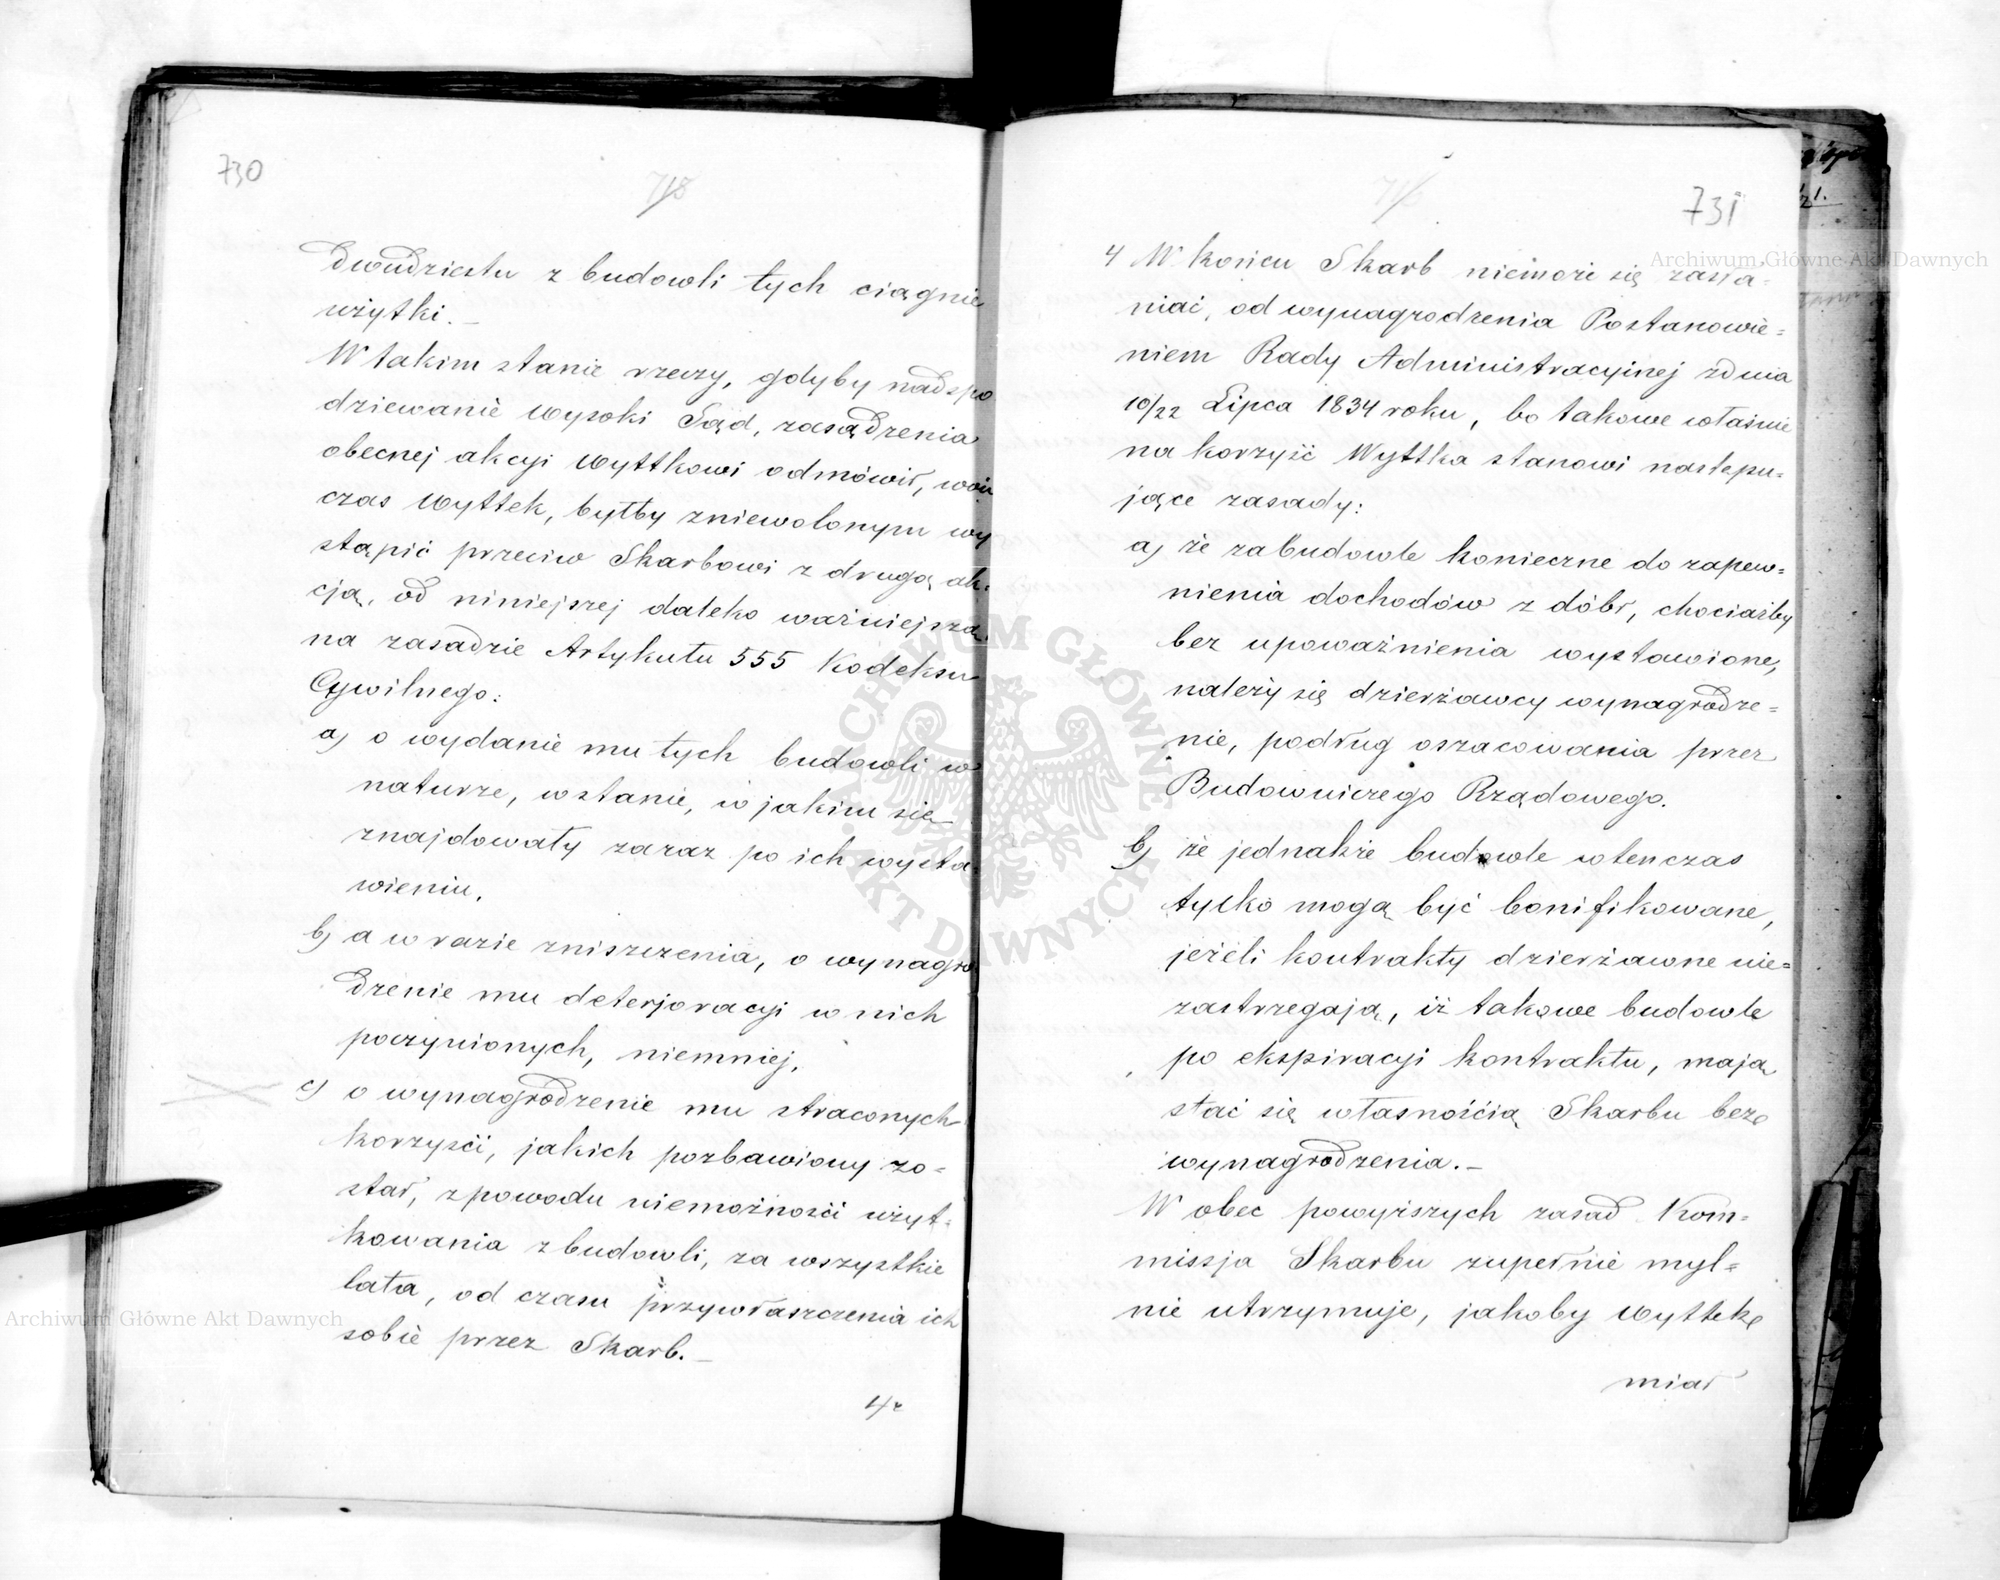 730
718
dwudziestu z budowli tych ciągnie
użytki.—
W takim stanie rzeczy, gdyby nadspo
dziewanie Wysoki Sąd, zasądzenia
obecnej akcyi Wyttkowi odmówił, wów
czas Wyttek, byłby zniewolonym wy
stąpić przeciw Skarbowi z drugą ak-
cją, od niniejszej daleko ważniejszą
na zasadzie Artykułu 555 Kodeksu
Cywilnego:
a) o wydanie mu tych budowli w
naturze, w stanie, w jakim się
znajdowały zaraz po ich wysta-
wieniu,
b) a w razie zniszczenia, o wynagro
dzenie mu deterjoracyi w nich
poczynionych, niemniej,
c) o wynagrodzenie mu straconych
korzyści, jakich pozbawiony zo-
stał, z powodu niemożności użyt-
kowania z budowli, za wszystkie
lata, od czasu przywłaszczenia ich
sobie przez Skarb.—
4
731
4 W końcu Skarb niemoże się zasła-
niać, od wynagrodzenia Postanowie=
niem Rady Administracyjnej z dnia
10/22 Lipca 1834 roku, bo takowe właśnie
na korzyść Wyttka stanowi następu-
jące zasady:
a) że zabudowle konieczne do zapew=
nienia dochodów z dóbr, chociażby
bez upoważnienia wystawione,
należy się dzierżawcy wynagrodze=
nie, podług oszacowania przez
Budowniczego Rządowego.
b) że jednakże budowle wtenczas
tylko mogą być bonifikowane,
jeżeli kontrakty dzierżawne nie=
zastrzegają, iż takowe budowle
po ekspiracyi kontraktu, mają
stać się własnością Skarbu bez
wynagrodzenia.—
W obec powyższych zasad Kom=
missja Skarbu zupełnie myl=
nie utrzymuje, jakoby Wyttek
miał
Archiwum Główne Akt Dawnych
Archiwum Główne Akt Dawnych
ARCHIWUM GŁÓWNE AKT DAWNYCH